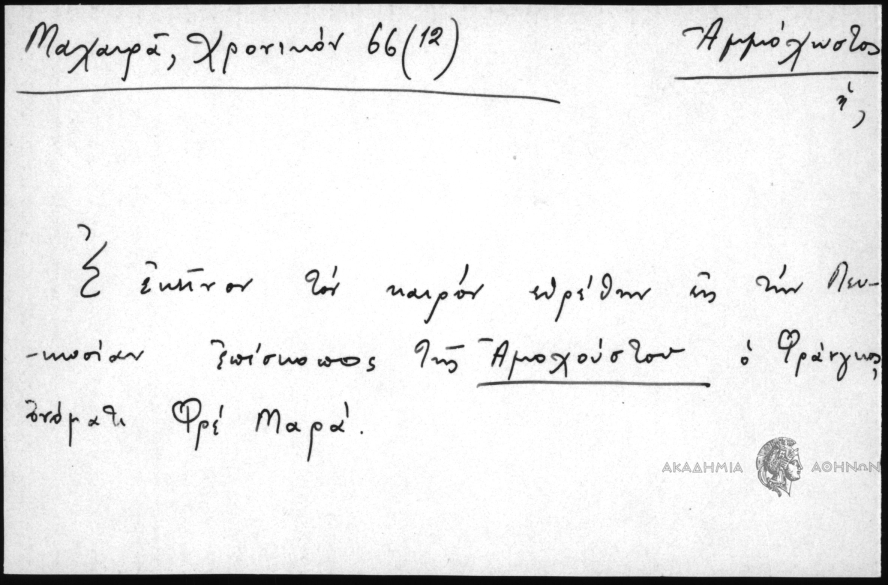 Μαχαιρᾶ, Χρονικόν 66 (12)
Ἀμμόχωστος
ἡ,
Εἰς ἐκεῖνον τὸν καιρὸν εὑρέθην εἰς τὴν Λευ-
-κωσίαν ἐπίσκοπος τῆς Ἀμοχούστου ὁ Φράνγκος,
ὀνόματι Φρέ Μαρά.
ΑΚΑΔΗΜΙΑ ΑΘΗΝΩΝ